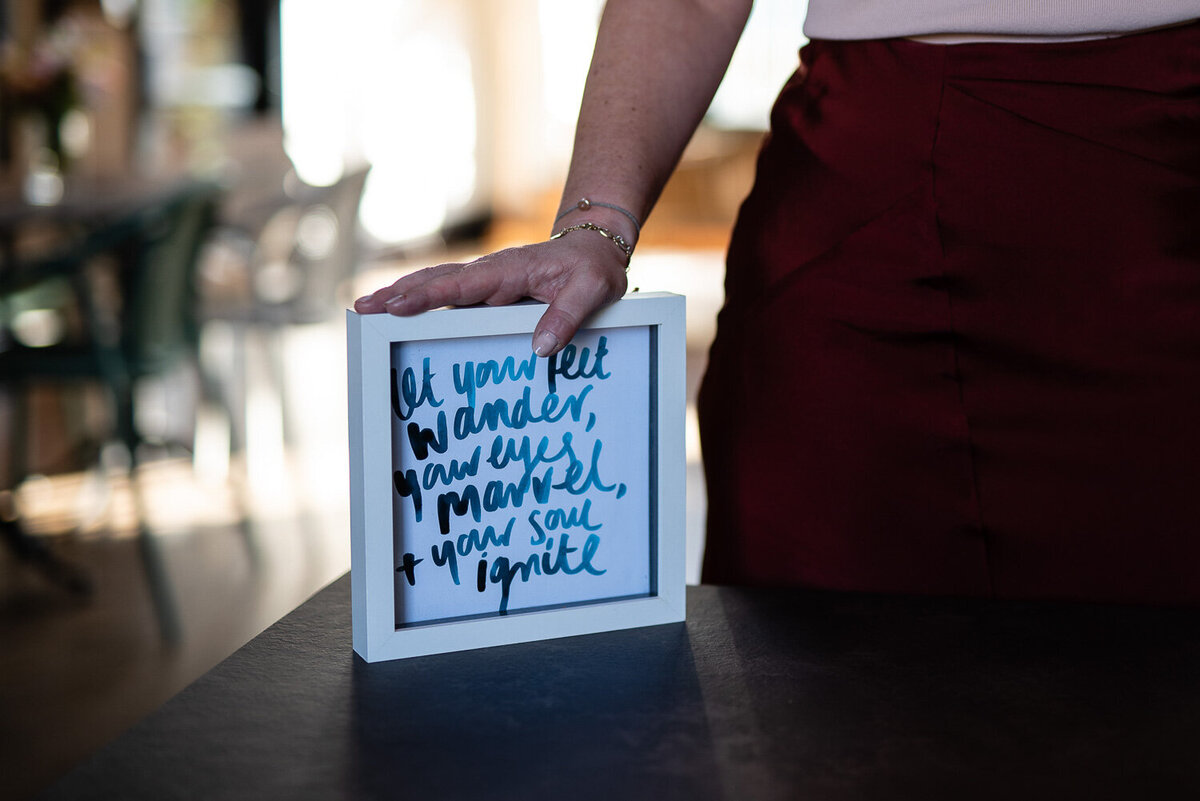 let your feet
wander,
your eyes
marvel,
+ your soul
ignite